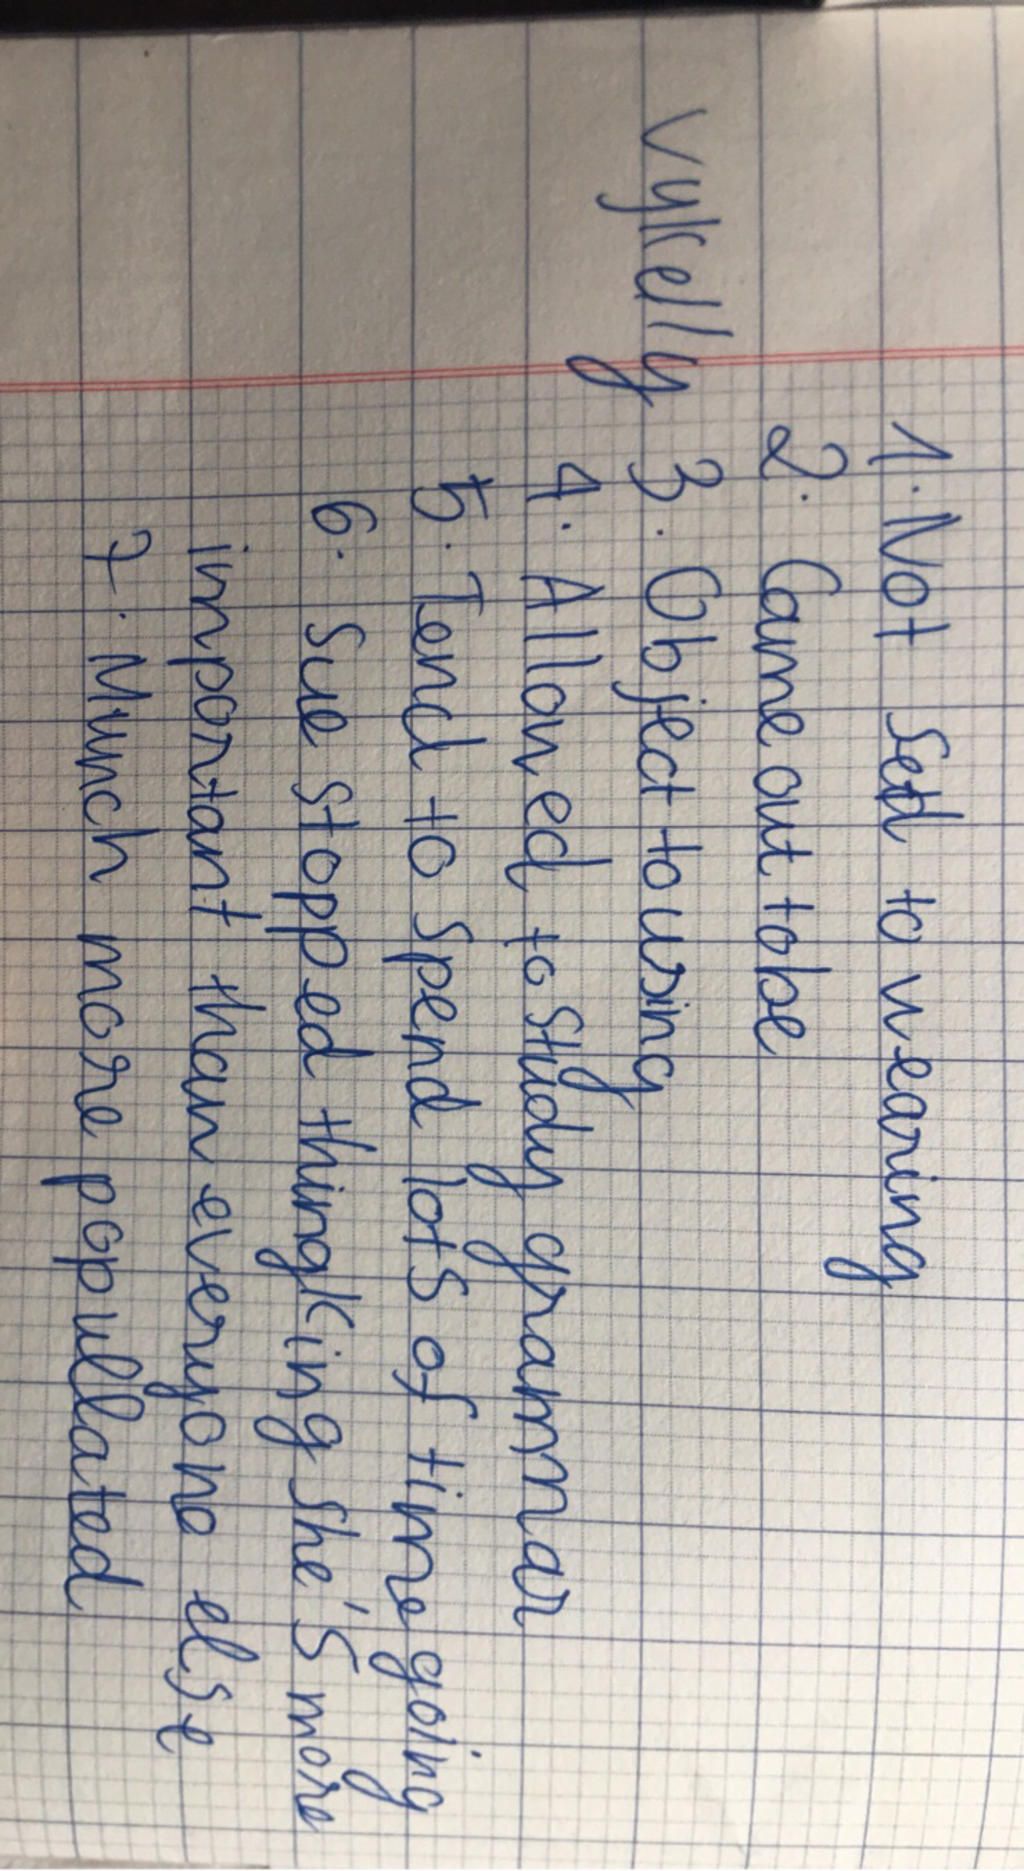 1. Not Sed to wearing
2. Came out to be
Vykelly 3. Object to using
4. Allowed to Study grammar
5. Tend to Spend lots of time going
6. Sue stopped thingking she's more
important than everyone else
7. Munch more popullated